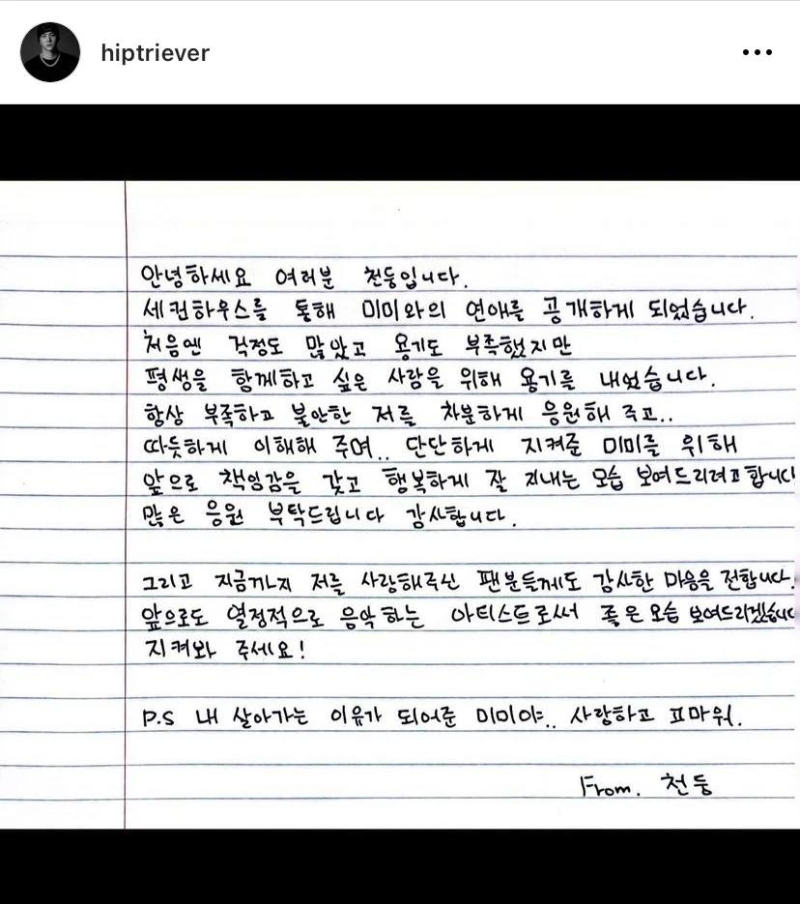 hiptriever
안녕하세요 여러분 천둥입니다.
세컨하우스를 통해 미미와의 연애를 공개하게 되었습니다.
처음엔 걱정도 많았고 용기도 부족했지만
평생을 함께하고 싶은 사람을 위해 용기를 내었습니다.
항상 부족하고 불안한 저를 차분하게 응원해 주고..
따듯하게 이해해 주며.. 단단하게 지켜준 미미를 위해
앞으로 책임감을 갖고 행복하게 잘 지내는 모습 보여드리려고 합니다
많은 응원 부탁드립니다 감사합니다.
그리고 지금까지 저를 사랑해주신 팬분들께도 감사한 마음을 전합니다.
앞으로도 열정적으로 음악하는 아티스트로써 좋은 모습 보여드리겠습니다
지켜봐 주세요!
P.S 내 살아가는 이유가 되어준 미미야.. 사랑하고 고마워.
From. 천둥